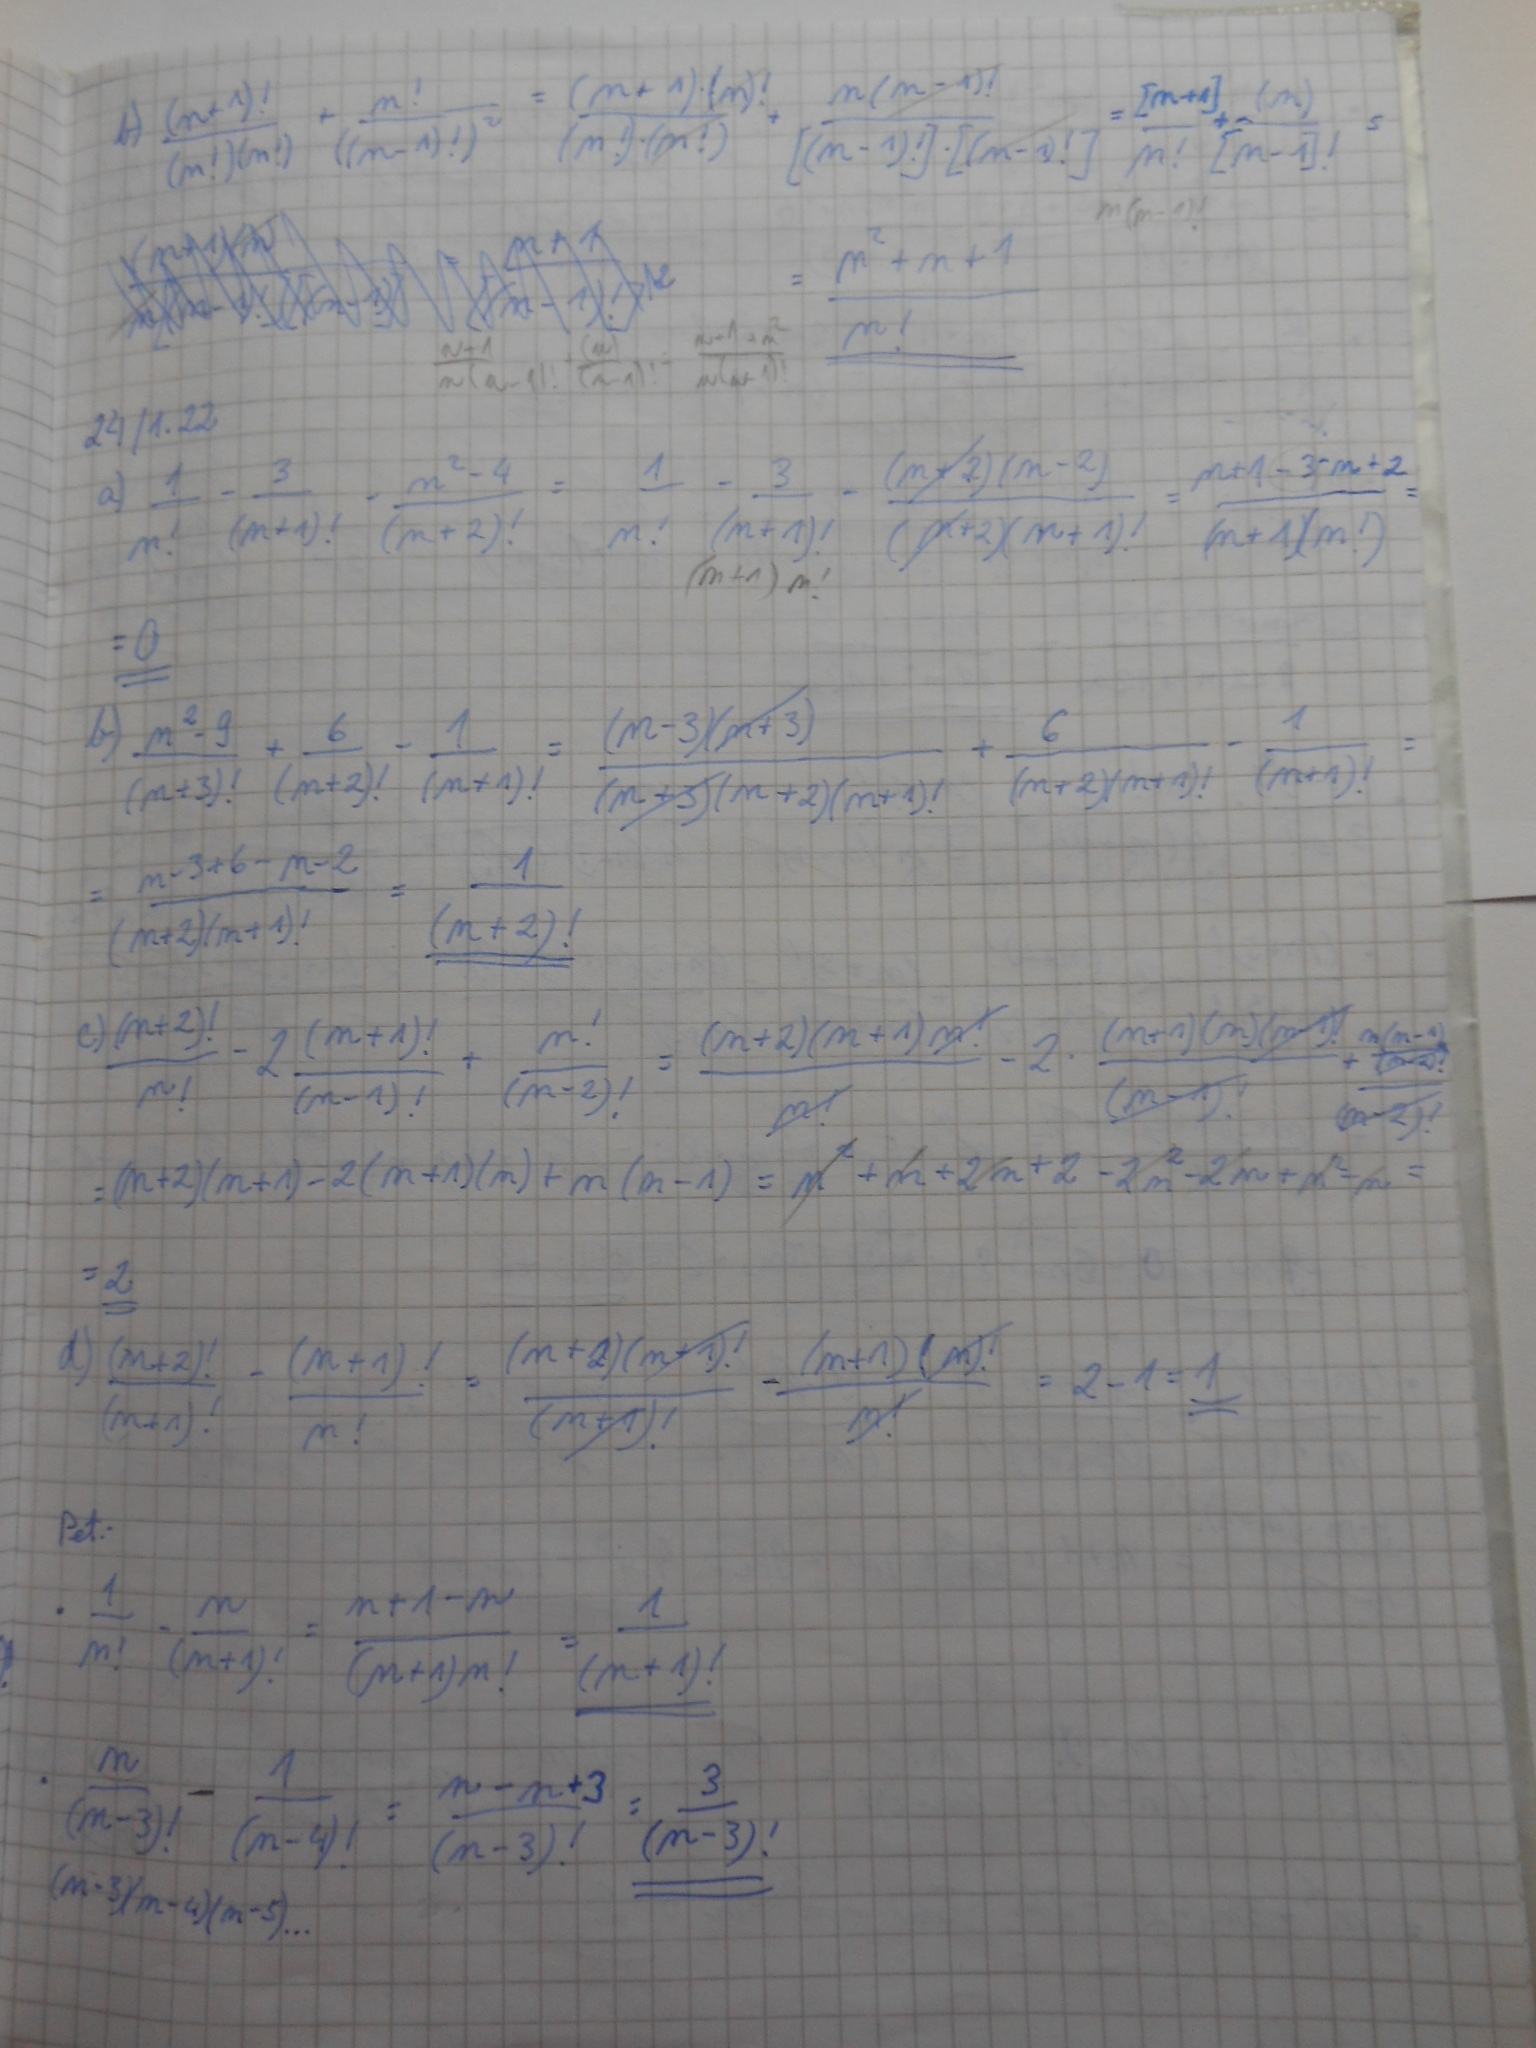 b) (n+1)!/(n!)(n!) + n!/((n-1)!)² = (n+1)·(n)!/(n!)·(n!) + n(n-1)!/[(n-1)!]·[(n-1)!] = [n+1]/n! + (n)/[n-1]! =
n(n-1)!
= n²+n+1/n!
n+1/n(n-1)! + (n)/(n-1)! = n+1+n²/n(n-1)!
24/1.22
a) 1/n! - 3/(n+1)! - n²-4/(n+2)! = 1/n! - 3/(n+1)! - (n+2)(n-2)/(n+2)(n+1)! = n+1-3-n+2/(n+1)(n!) =
(n+1) n!
= 0
b) n²-9/(n+3)! + 6/(n+2)! - 1/(n+1)! = (n-3)(n+3)/(n+3)(n+2)(n+1)! + 6/(n+2)(n+1)! - 1/(n+1)! =
= n-3+6-n-2/(n+2)(n+1)! = 1/(n+2)!
c) (n+2)!/n! - 2 (n+1)!/(n-1)! + n!/(n-2)! = (n+2)(n+1)n!/n! - 2· (n+1)(n)(n-1)!/(n-1)! + n(n-1)(n-2)!/(n-2)!
= (n+2)(n+1) - 2(n+1)(n) + n(n-1) = n² + n + 2n + 2 - 2n² - 2n + n² - n =
= 2
d) (n+2)!/(n+1)! - (n+1)!/n! = (n+2)(n+1)!/(n+1)! - (n+1)(n)!/n! = 2-1 = 1
Pet.:
· 1/n! - n/(n+1)! = n+1-n/(n+1)n! = 1/(n+1)!
· n/(n-3)! - 1/(n-4)! = n-n+3/(n-3)! = 3/(n-3)!
(n-3)(n-4)(n-5)...